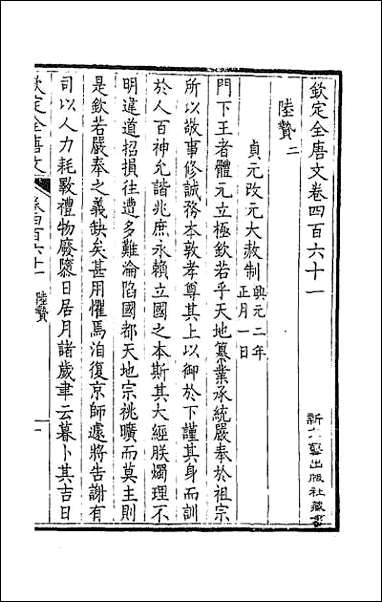 欽定全唐文卷四百六十一
陸贄二
貞元改元大赦制興元二年正月一日
門下王者體元立極欽若乎天地纂業承統嚴奉於祖宗
所以敬事修誠務本敦孝尊其上以御於下謹其身而訓
於人百神允諧兆庶永賴立國之本斯其大經朕燭理不
明違道招損往遭多難淪陷國都天地宗祧曠而莫主則
是欽若嚴奉之義缺矣甚用懼焉洎復京師遽將告謝有
司以人力耗斁禮物廢隳日居月諸歲聿云暮卜其吉日
欽定全唐文 卷四百六十一 陸贄 一
出版社藏書